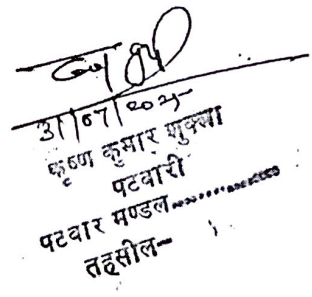 31/07/2025
कृष्ण कुमार शुक्ला
पटवारी
पटवार मण्डल..............
तहसील-